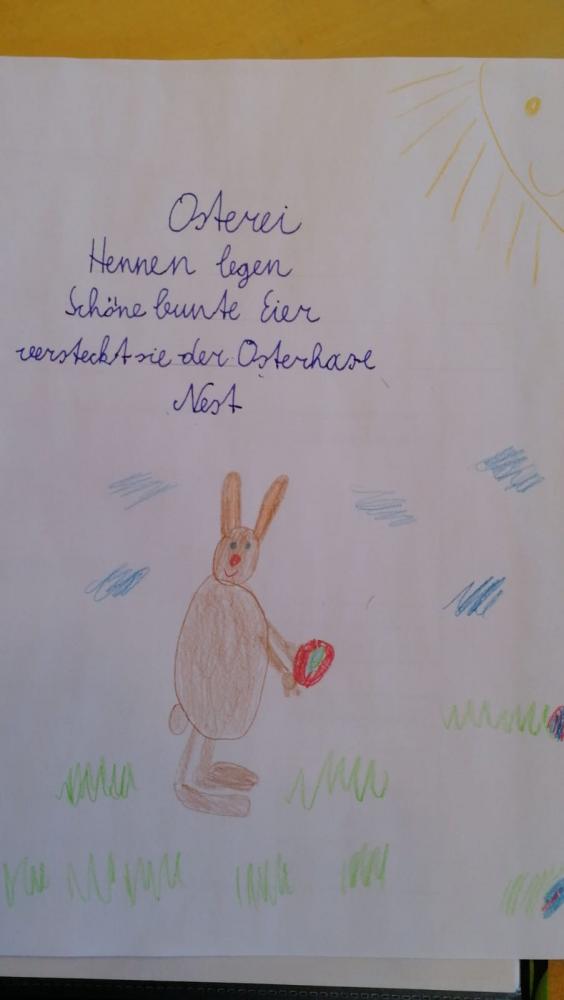 Osterei
Hennen legen
Schöne bunte Eier
versteckt sie der Osterhase
Nest